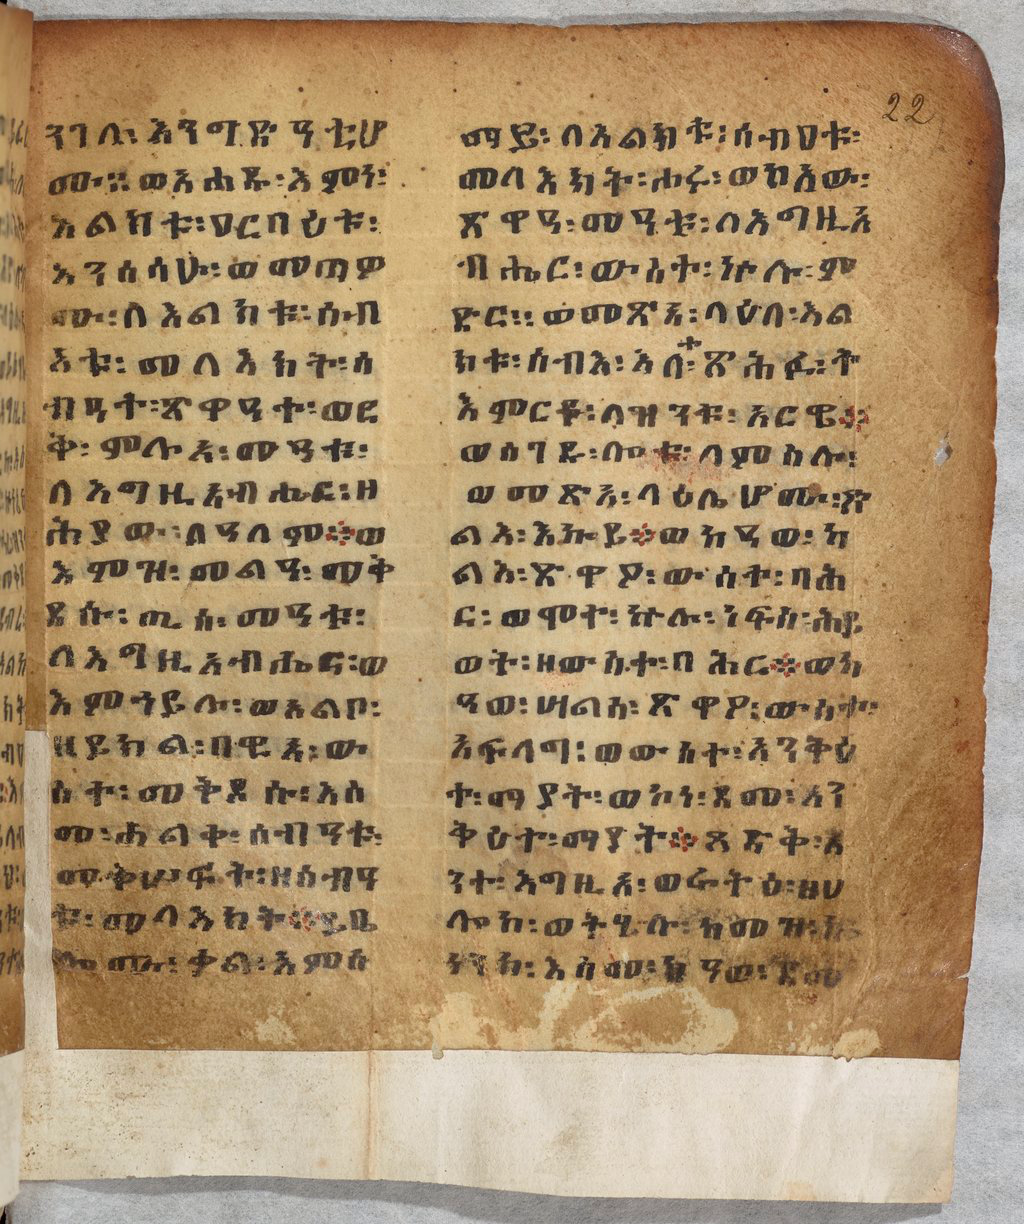 22
ንገሊ፡ እንግድዓቲሆ
ሙ፡፡ ወአሐዱ፡ እምነ፡
እልክቱ፡ ፀርበዕቱ፡
እንስሳሁ፡ ወመጠዎ
ሙ፡ ለእልክቱ፡ ሰብ
አቱ፡ መላእክት፡ ሰ
ብዓተ፡ ጽዋዓተ፡ ወር
ቅ፡ ምሉእ፡ መዓቱ፡
ለእግዚአብሔር፡ ዘ
ሕያው፡ ለዓለም፨ ወ
እምዝ፡ መልዓ፡ መቅ
ደሱ፡ ጢሰ፡ መዓቱ፡
ለእግዚአብሔር፡ ወ
እምኀይሉ፡ ወአልቦ፡
ዘይክል፡ በዊአ፡ ው
ስተ፡ መቅደሱ፡ እስ
መ፡ ሐልቀ፡ ሰብዓቱ፡
መቅሠፍት፡ ዘሰብዓ
ቱ፡ መላእክት፨ ይቤ
ሎሙ፡ ቃል፡ እምሰ
ማይ፡ ለእልክቱ፡ ሰብፀቱ፡
መላእክት፡ ሑሩ፡ ወከአው፡
ጽዋዓ፡ መዓቱ፡ ለእግዚአ
ብሔር፡ ውስተ፡ ኵሉ፡ ም
ድር፡፡ ወመጽአ፡ ላዕለ፡ እል
ክቱ፡ ሰብእ፡ እለ፡ ጽሕፈ፡ ት
እምርቱ፡ ለዝንቱ፡ አርዌ፨
ወሰገዱ፡ ሎቱ፡ ለምስሉ፡
ወመጽአ፡ ላዕሌሆሙ፡ ጽ
ልአ፡ እኩይ፨ ወክዓወ፡ ካ
ልእ፡ ጽዋዖ፡ ውስተ፡ ባሕ
ር፡ ወሞተ፡ ኵሉ፡ ነፍስ፡ ሕይ
ወት፡ ዘውስተ፡ በሕር፨ ወክ
ዓወ፡ ሣልስ፡ ጽዋዖ፡ ውስተ፡
አፍላግ፡ ወውስተ፡ አንቅዕ
ተ፡ ማያት፡ ወኮነ፡ ደመ፡ አን
ቅዕተ፡ ማያት፨ ጻድቅ፡ አ
ንተ፡ እግዚአ፡ ወርትዕ፡ ዘሀ
ሎከ፡ ወትሄሉ፡ ከመዝ፡ ኰ
ነንከ፡ እስመ፡ ከዓው፡ ደመ